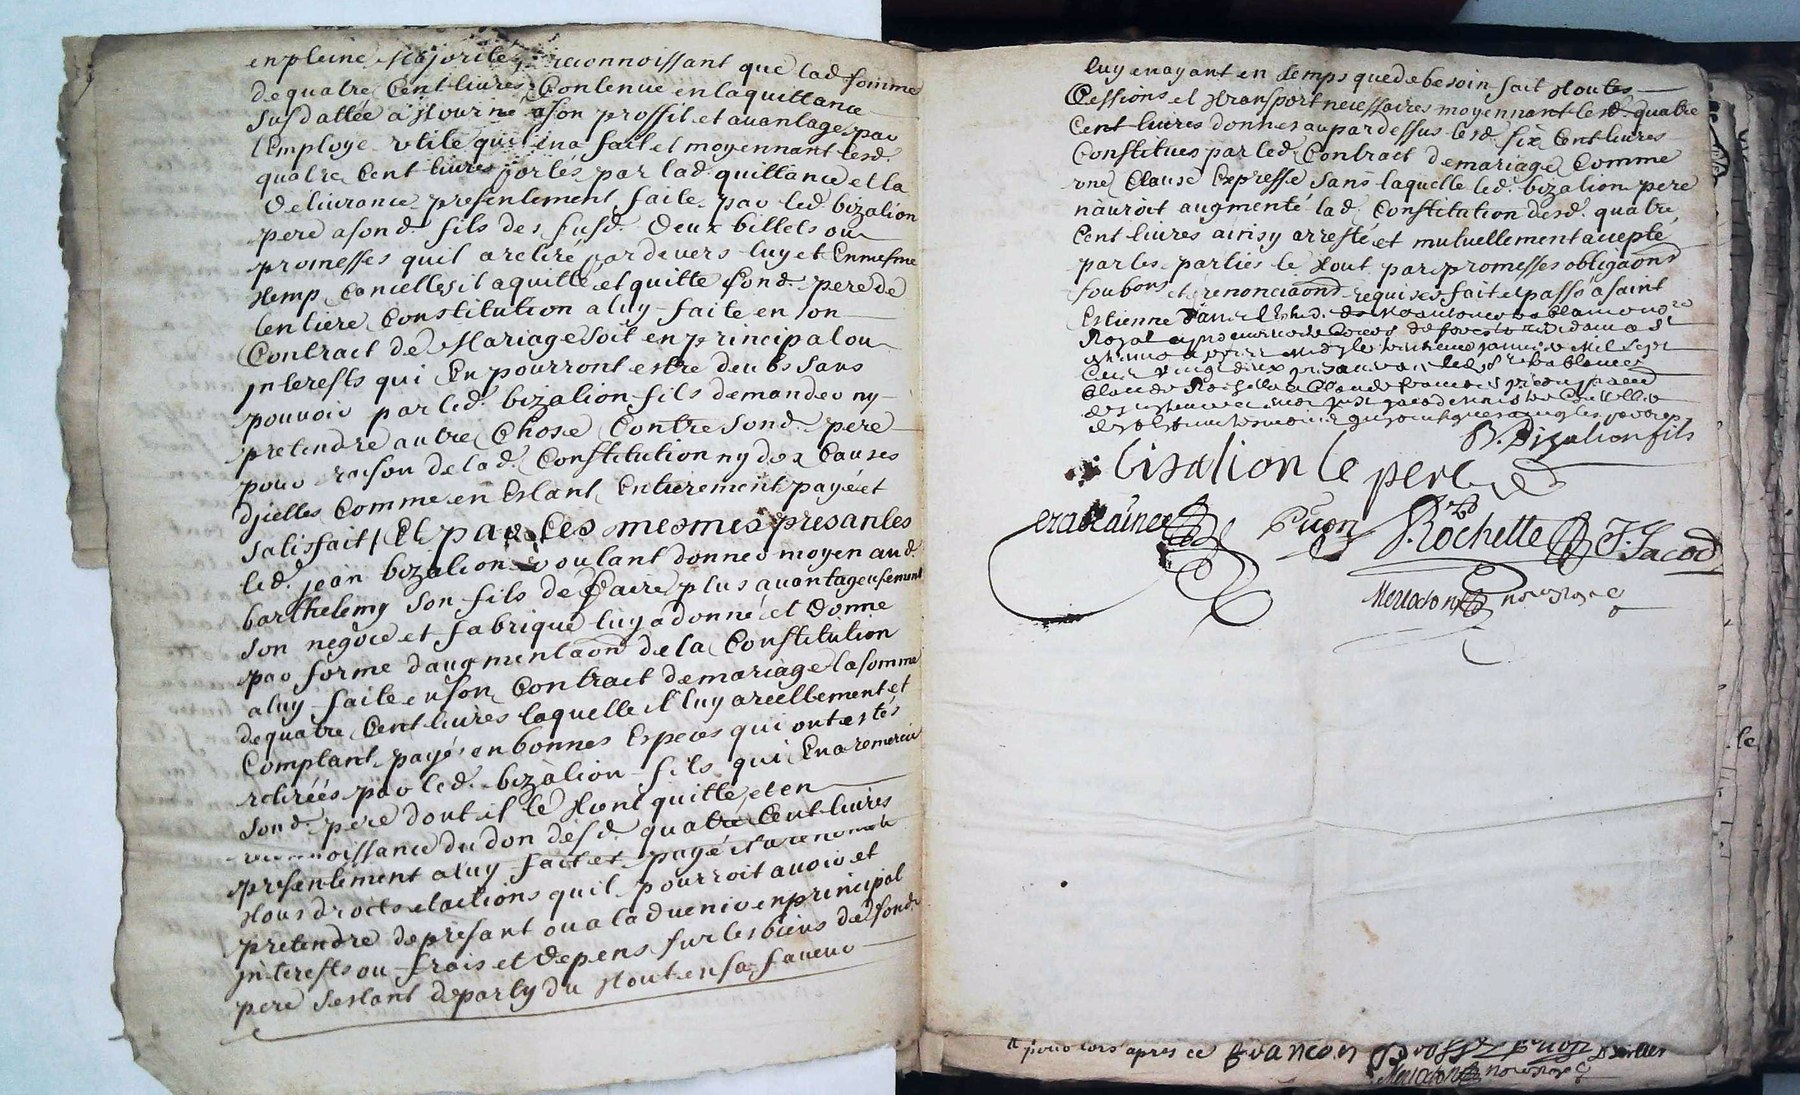 en pleine Majorité reconnoissant que lad. somme
de quatre Cent livres Contenue en laquittance
susdattée a tourné a son proffit et avantages par
l'Employe utile quil ena fait et moyennant lesd.
quatre Cent livres portés par lad. quittance et la
delivrance presentement faite par led. bizalion
pere a sond. fils des susd. deux billets ou
promesses quil a retiré pardevers luy et Enmesme
temp Cancelles il a quitté et quitte sond. pere de
lentiere Constitution a luy faite en son
Contract de Mariage soit en principal ou
jnterests qui En pourront estre deubs sans
pouvoir par led. bizalion fils demander ny
pretendre autre Chose Contre sond. pere
pour raison delad. Constitution ny des Causes
djcelles Comme en Estant Entierement payé et
satisfait / Et par Ces mesmes presantes
led. jean bizalion voulant donner moyen aud.
barthelemy son fils de faire plus avantageusement
son negoce et fabrique luy a donné et donne
par forme daugmentaon de la Constitution
a luy faite en son Contract demariage la somme
dequatre Cent livres laquelle il luy a reellement et
Comptant payé en bonnes Especes qui ont estés
retirées par led. bizalion fils qui En a remercié
sond. pere dont il le tient quitte et en
reconnoissance du don desd. quatre Cent livres
presentement a luy fait et payé il a renoncé a
tous droits et actions quil pourroit avoir et
pretendre de presant ou a ladvenir en principal
jnterests ou frais et depens sur les biens de sond.
pere sestant deparly du tout en sa faveur
luy en ayant en temps que de besoin fait toutes
Cessions et transport necessaires moyennant lesd. quatre
Cent livres donnes au par dessus lesd. six Cent livres
Constitues par led. Contract demariage Comme
une Clause Expresse sans laquelle led. bizalion pere
nauroit augmenté lad. Constitution desd. quatre
Cent livres ainsy arresté et mutuellement accepté
par les parties le tout par promesses obligaons
soubons et renonciaons requises fait et passé a saint
Estienne
Royal
Cent vingt deux
Claude Rochette Claude francois
B. Bizalion fils
bisalion le pere
Puon J. Rochette F. Jacod
pour lors apres ce francon Puon